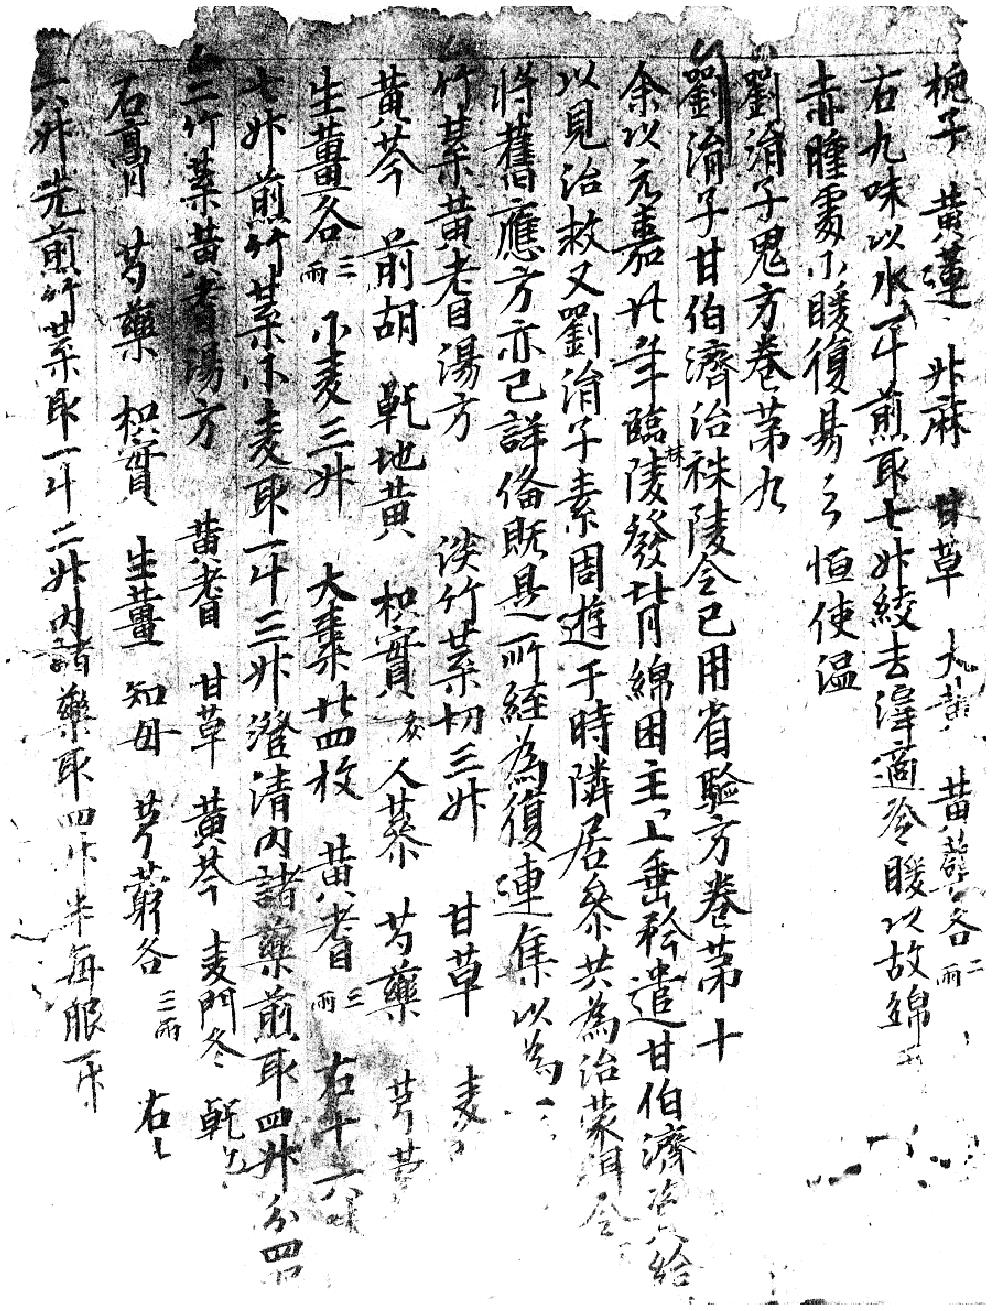 梔子 黃連 升麻 甘草 大黃 黃蘗各二兩
右九味以水一斗煎取七升絞去滓適冷暖以故綿
赤腫處小暖復易之恒使溫
劉涓子鬼方卷第九
劉涓子甘伯濟治秣陵令已用省驗方卷第十
余以元嘉廿年臨秣陵發背綿困主上垂矜遣甘伯濟 給
以見治救又劉涓子素周遊于時隣居叅共為治蒙 令
將舊應方亦已詳俻既是所經為復連集以為
竹葉黃耆湯方 淡竹葉切三升 甘草 麦
黃芩 前胡 乹地黃 枳實炙 人葠 芍藥 芎
生薑各三兩 小麦三升 大棗廿四枚 黃耆三兩 右十六
七升煎竹葉小麦取一斗三升澄清內諸藥煎取四升分四
三竹葉黃耆湯方 黃耆 甘草 黃芩 麦門冬 乹
石膏 芍藥 枳實 生薑 知母 芎藭各三兩 右
一 升先煎竹葉取一斗二升內諸藥取四升半每服一升